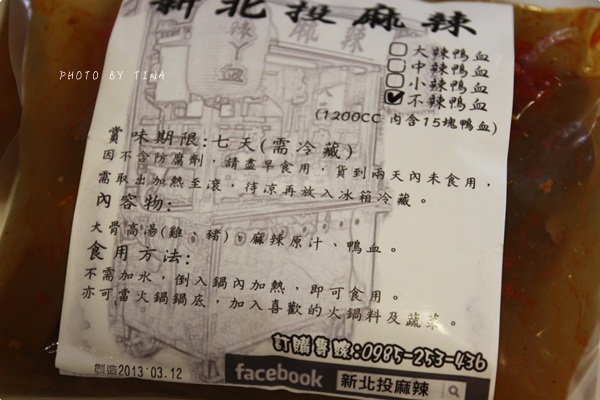 新北投麻辣
PHOTO BY TINA
辣丫血
麻辣
大辣鴨血
中辣鴨血
小辣鴨血
不辣鴨血
(1200CC 內含15塊鴨血)
賞味期限:七天(需冷藏)
因不含防腐劑，請盡早食用，貨到兩天內未食用，
需取出加熱至滾，待涼再放入冰箱冷藏。
內容物:
大骨高湯(雞、豬)、麻辣原汁、鴨血。
食用方法:
不需加水，倒入鍋內加熱，即可食用。
亦可當火鍋鍋底，加入喜歡的火鍋料及蔬菜。
訂購專線:0985-253-436
製造2013.03.12
facebook 新北投麻辣